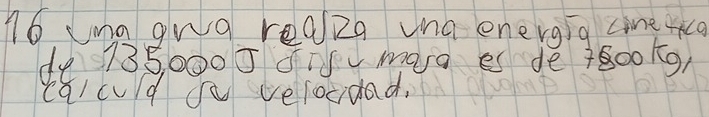 16 una grua realiza una energia cinetica
de 135,000 J si su masa es de 7800 kg,
calcula su velocidad.